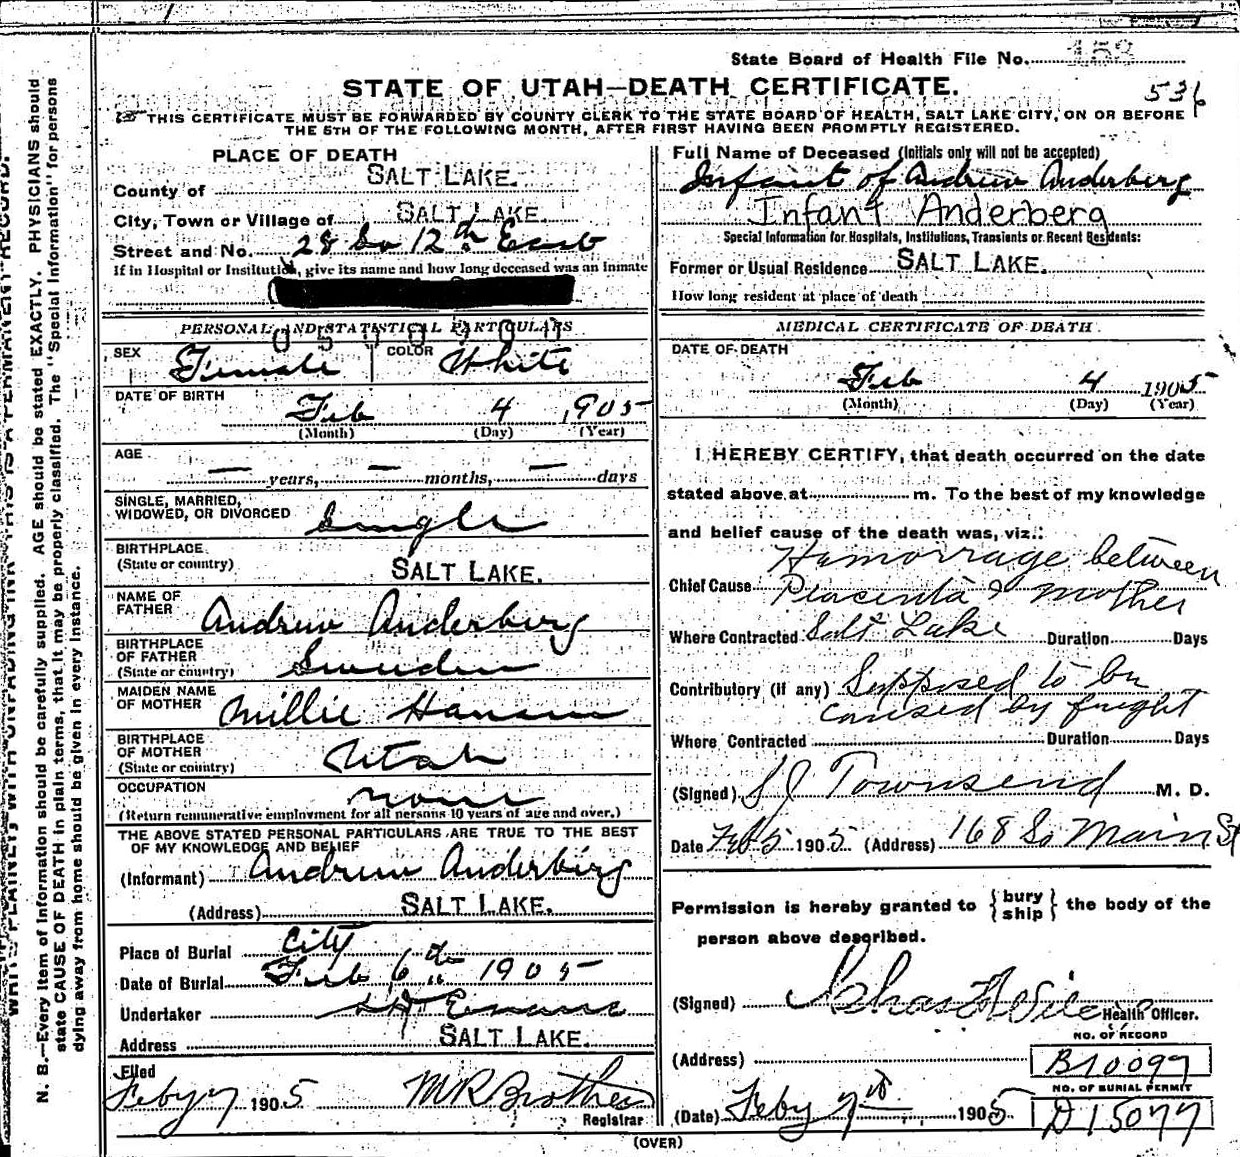 State Board of Health File No. 153
STATE OF UTAH—DEATH CERTIFICATE.
536
THIS CERTIFICATE MUST BE FORWARDED BY COUNTY CLERK TO THE STATE BOARD OF HEALTH, SALT LAKE CITY, ON OR BEFORE
THE 5TH OF THE FOLLOWING MONTH, AFTER FIRST HAVING BEEN PROMPTLY REGISTERED.
PLACE OF DEATH
County of SALT LAKE.
City, Town or Village of SALT LAKE
Street and No. 28 So 12th East
If in Hospital or Insitution, give its name and how long deceased was an inmate
PERSONAL AND STATISTICAL PARTICULARS
SEX Female COLOR White
DATE OF BIRTH
Feb 4 1905
(Month) (Day) (Year)
AGE
— years, — months, — days
SINGLE, MARRIED,
WIDOWED, OR DIVORCED Single
BIRTHPLACE
(State or country) SALT LAKE.
NAME OF
FATHER Andrew Anderberg
BIRTHPLACE
OF FATHER
(State or country) Sweden
MAIDEN NAME
OF MOTHER Millie Hansen
BIRTHPLACE
OF MOTHER
(State or country) Utah
OCCUPATION none
(Return remunerative employment for all persons 10 years of age and over.)
THE ABOVE STATED PERSONAL PARTICULARS ARE TRUE TO THE BEST
OF MY KNOWLEDGE AND BELIEF
(Informant) Andrew Anderberg
(Address) SALT LAKE.
Place of Burial City
Date of Burial Feb 6th 1905
Undertaker Evans
Address SALT LAKE.
Filed
Feby 7 1905 M R Brothers
Registrar
Full Name of Deceased (Initials only will not be accepted)
Infant of Andrew Anderberg
Infant Anderberg
Special Information for Hospitals, Institutions, Transients or Recent Residents:
Former or Usual Residence SALT LAKE.
How long resident at place of death
MEDICAL CERTIFICATE OF DEATH.
DATE OF DEATH
Feb 4 1905
(Month) (Day) (Year)
I HEREBY CERTIFY, that death occurred on the date
stated above, at m. To the best of my knowledge
and belief cause of the death was, viz.:
Hemorrage between
Chief Cause Placenta & mother
Where Contracted Salt Lake Duration Days
Contributory (if any) Supposed to be
caused by fright
Where Contracted Duration Days
(Signed) S J Townsend M. D.
Date Feb 5 1905 (Address) 168 So Main St
Permission is hereby granted to { bury ship } the body of the
person above described.
(Signed) Health Officer.
NO. OF RECORD
(Address) B10097
NO. OF BURIAL PERMIT
(Date) Feby 7th 1905 D15077
(OVER)
N. B.—Every item of Information should be carefully supplied. AGE should be stated EXACTLY. PHYSICIANS should
state CAUSE OF DEATH in plain terms, that it may be properly classified. The "Special Information" for persons
dying away from home should be given in every instance.
WRITE PLAINLY, WITH UNFADING INK—THIS IS A PERMANENT RECORD.